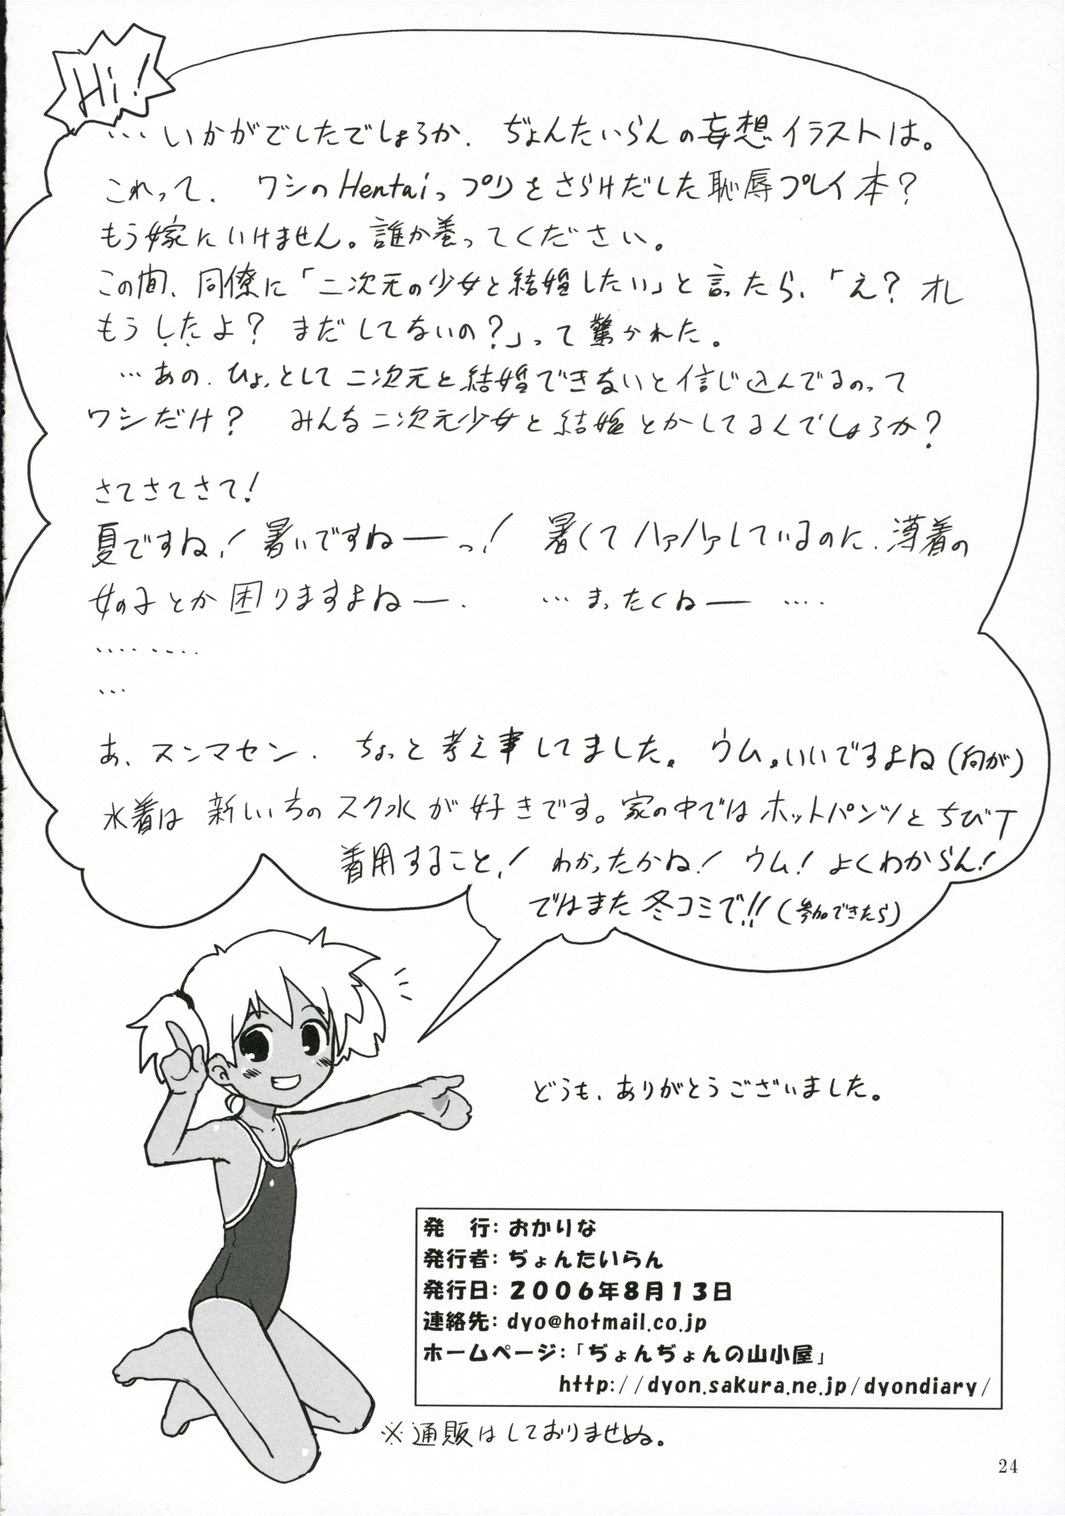 Hi!
…いかがでしたでしょうか. ぢょんたいらんの妄想イラストは。
これって. ワシのHentaiっプリをさらけだした恥辱プレイ本?
もう嫁にいけません。誰か養ってください。
この間、同僚に「二次元の少女と結婚したい」と言ったら、「え? オレ
もうしたよ? まだしてないの?」って驚かれた。
…あの. ひょっとして二次元と結婚できないと信じ込んでるのって
ワシだけ? みんな二次元少女と結婚とかしてるんでしょうか?
さてさてさて!
夏ですね! 暑いですねーっ! 暑くてハァハァしているのに、薄着の
女の子とか困りますよねー. …まったくねー ….
………
…
あ、スンマセン. ちょっと考え事してました。ウム。いいですよね(何が)
水着は新しいうちのスク水が好きです。家の中ではホットパンツとちびT
着用すること! わかったかね! ウム! よくわからん!
ではまた冬コミで!!(参加できたら)
どうも、ありがとうございました。
発　行: おかりな
発行者: ぢょんたいらん
発行日: 2006年8月13日
連絡先: dyo@hotmail.co.jp
ホームページ:「ぢょんぢょんの山小屋」
http://dyon.sakura.ne.jp/dyondiary/
※通販はしておりませぬ。
24